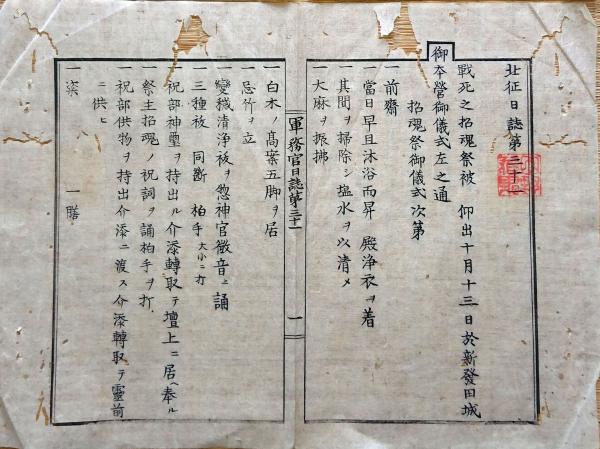 北征日誌第三十一
戰死之招魂祭被 仰出十月十三日於新發田城
御本營御儀式左之通
招魂祭御儀式次第
一 前齋
一 當日早且沐浴而昇 殿淨衣ヲ着
一 其間ヲ掃除シ塩水ヲ以清メ
一 大麻ヲ振拂
軍務官日誌第三十一
一
一 白木ノ髙案五脚ヲ居
一 忌竹ヲ立
一 變穢清浄祓ヲ惣神官微音ニ誦
一 三種祓 同断 柏手大小ニ打
祝部神璽ヲ持出ル介添轉取テ壇上ニ居ヘ奉ル
一 祭主招魂ノ祝詞ヲ誦柏手ヲ打
一 祝部供物ヲ持出介添ニ渡ス介添轉取テ靈前
ニ供ヒ
一 粢 一膳